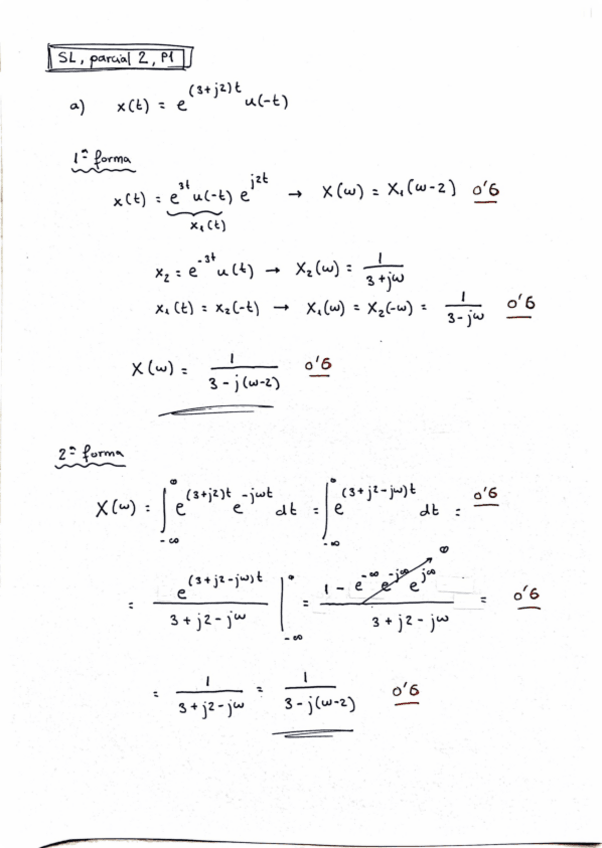 SL, parcial 2, P1
a) x(t) = e^(3+j2)t u(-t)
1ª forma
x(t) = e^3t u(-t) e^j2t → X(ω) = X₁(ω-2) 0'6
x₁(t)
x₂ = e^-3t u(t) → X₂(ω) = 1/(3+jω)
x₁(t) = x₂(-t) → X₁(ω) = X₂(-ω) = 1/(3-jω) 0'6
X(ω) = 1/(3-j(ω-2)) 0'6
2ª forma
X(ω) = ∫_-∞^0 e^(3+j2)t e^-jωt dt = ∫_-∞^0 e^(3+j2-jω)t dt = 0'6
= e^(3+j2-jω)t/(3+j2-jω) |_-∞^0 = (1 - e^-∞ e^-j∞ e^j∞)/(3+j2-jω) = 0'6
= 1/(3+j2-jω) = 1/(3-j(ω-2)) 0'6